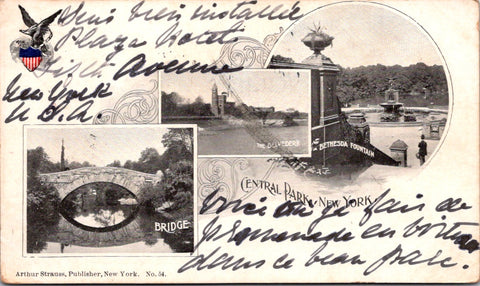 Suis bien installée
Plaza Hotel
Fifth Avenue
New York
U.S.A.
THE BELVEDERE
THE BETHESDA FOUNTAIN
CENTRAL PARK, NEW YORK
BRIDGE
Voici où je fais de
promenade en
dans ce beau parc.
Arthur Strauss, Publisher, New York. No. 54.